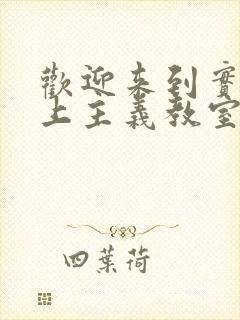 歡迎來到實
上主義教室
四葉荷